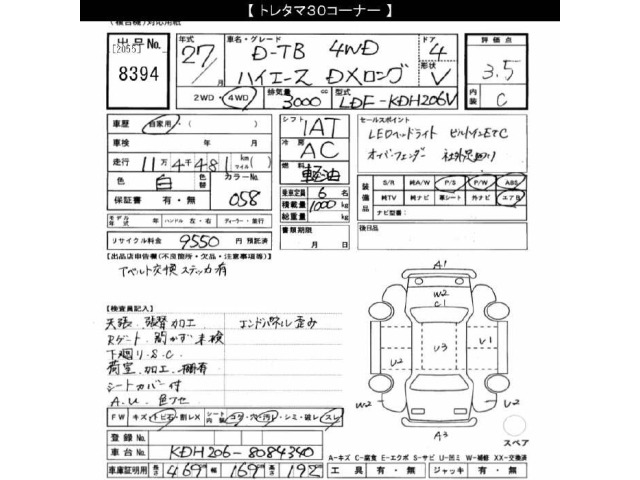 【 トレタマ30コーナー 】
(複合機)対応用紙
出品No.
[2055]
8394
年式 27 / 月
車名・グレード D-TB 4WD
ハイエース DXロング
ドア 4 V
評価点 3.5
内装 C
2WD・4WD
排気量 3000 cc
型式 LDF-KDH206V
車歴 自家用・( )
車検 年 月
走行 11万4千481 km(マイル)
色 白 色替
カラーNo. 058
保証書 有・無
シフト 1AT
冷房 AC
燃料 軽油
乗車定員 6 名
積載量 1000 kg
総重量 kg
セールスポイント
LEDヘッドライト ビルトインETC
オーバーフェンダー
装備品
S/R 純A/W P/S P/W ABS
純TV 純ナビ 革シート 外ナビ エアB
ナビ型番:
モデル年式 年 ハンドル 左・右 ディーラー・並行
リサイクル料金 9550 円 預託済
書類期限 月 日
後日品
【出品店申告欄(不良箇所・欠品・注意事項等)】
Tベルト交換ステッカ有
【検査員記入】
天張.張替加工 エンドパネル歪み
Rゲート.開かず未検
下廻り.S.C
荷室.加工.棚有
シートカバー付
A.U.色フセ
FW キズ・トビ石・割レX シート内装 コゲ・穴・汚レ・シミ・破レ・スレ
登録No.
車台No. KDH206-8084340
車庫証明用 長さ 469 cm 幅 169 cm 高さ 192 cm
A1
W2
C1
U3
U1
U2
U2
U2
A3
スペア
A-キズ C-腐食 E-エクボ S-サビ U-凹ミ W-補修 XX-交換済
工具 有・無 ジャッキ 有・無